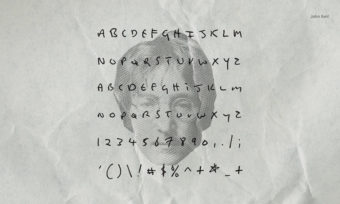 John Kent
A B C D E F G H I J K L M
N O P Q R S T U V W X Y Z
A B C D E F G H I J K L M
N O P Q R S T U V W X Y Z
1 2 3 4 5 6 7 8 9 0 , . / ;
' ( ) \ ! # $ % ^ + * _ +